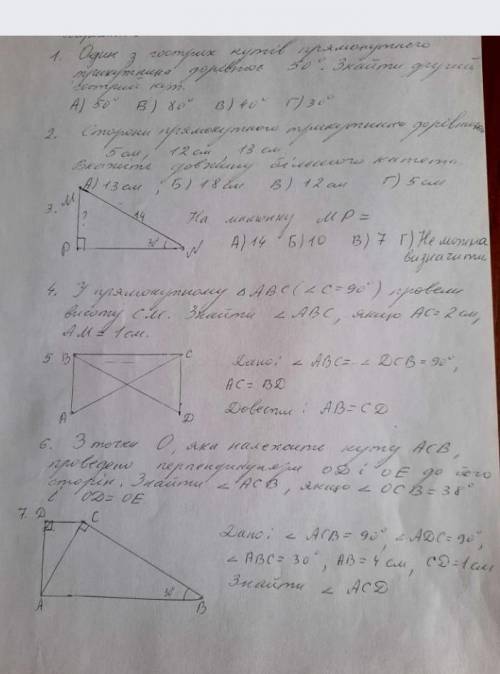 1. Один з гострих кутів прямокутного
трикутника дорівнює 50°. Знайти другий
гострий кут.
А) 50° Б) 80° В) 40° Г) 30°
2. Сторони прямокутного трикутника
5 см, 12 см 13 см
Вкажіть довжину більшого катета
А) 13 см; Б) 18 см В) 12 см Г) 5 см
3.
M
?
14
P
30°
N
На малюнку MP =
А) 14 Б) 10 В) 7 Г) Не можна
визначити
4. У прямокутному △ ABC (∠C = 90°) провели
висоту CM. Знайти ∠ABC, якщо AC = 2 см,
AM = 1 см.
5.
B
C
A
D
Дано: ∠ABC = ∠DCB = 90°,
AC = BD
Довести: AB = CD
6. З точки O, яка належить куту ACB,
проведено перпендикуляри OD і OE до його
сторін. Знайти ∠ACB, якщо ∠OCB = 38°
і OD = OE
7.
D
C
A
30°
B
Дано: ∠ACB = 90°, ∠ADC = 90°,
∠ABC = 30°, AB = 4 см, CD = 1 см
Знайти ∠ACD